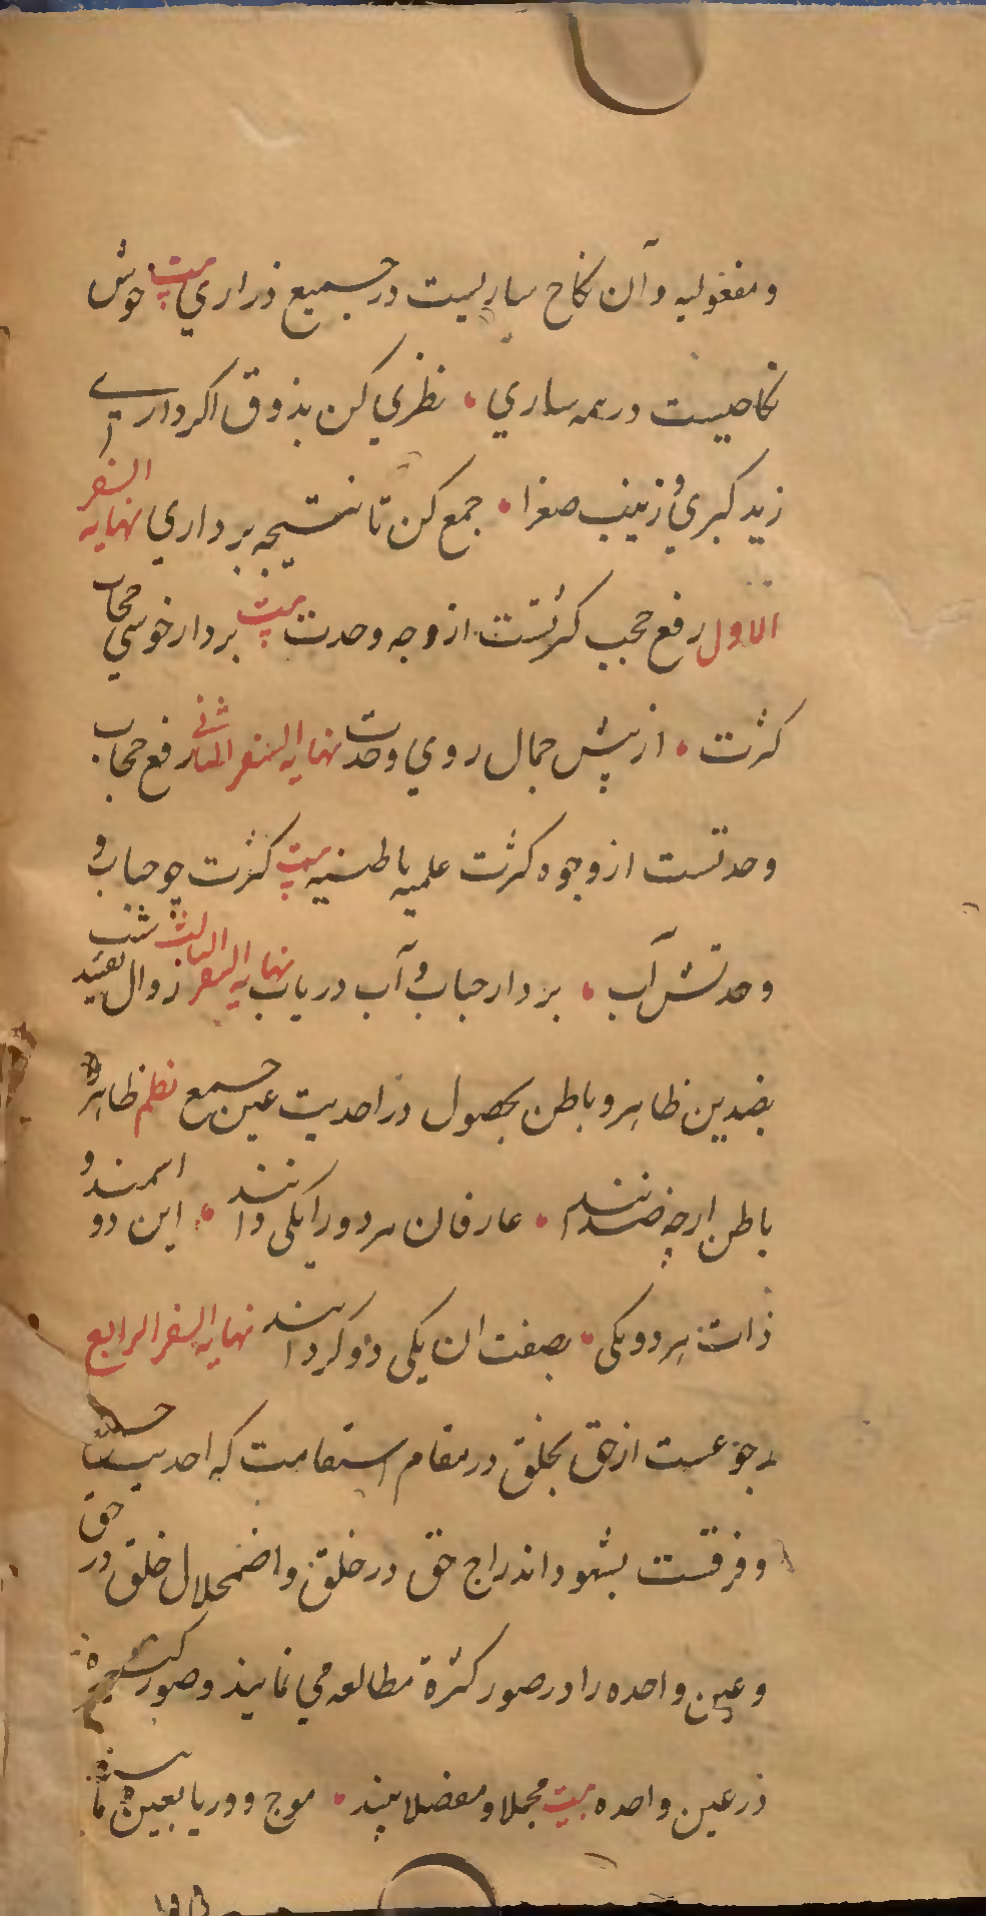 ومفعولیه وآن نکاح ساریست در جمیع ذراری بیت خوش
نکاحیست در همه ساری • نظری کن بذوق اکر داری
زید کبری و زینب صغرا • جمع کن تا نتیجه برداری نهایه السفر
الاول رفع حجب کثرتست از وجه وحدت بیت بردار خوشی حجاب
کثرت • از پیش جمال روی وحدت نهایه السفر الثانی رفع حجاب
وحدتست از وجوه کثرت علمیه باطنیه بیت کثرت چو حباب و
وحدتش آب • بردار حباب و آب دریاب نهایه السفر الثالث زوال تقید شت
بضدین ظاهر و باطن بحصول در احدیت عین جمع نظم ظاهر و
باطن ارچه ضدانند • عارفان هر دو را یکی دانند • این دو اسمند و
ذات هر دو یکی • بصفت ان یکی دو کردانند نهایه السفر الرابع
رجوعست از حق بخلق در مقام استقامت که احدیت
وفرقست بشهود اندراج حق در خلق و اضمحلال خلق در حق
وعین واحده را در صور کثرة مطالعه می نمایند وصور کثیره
در عین واحده بیت مجملا ومفصلا بیند • موج و دریا بعین ما